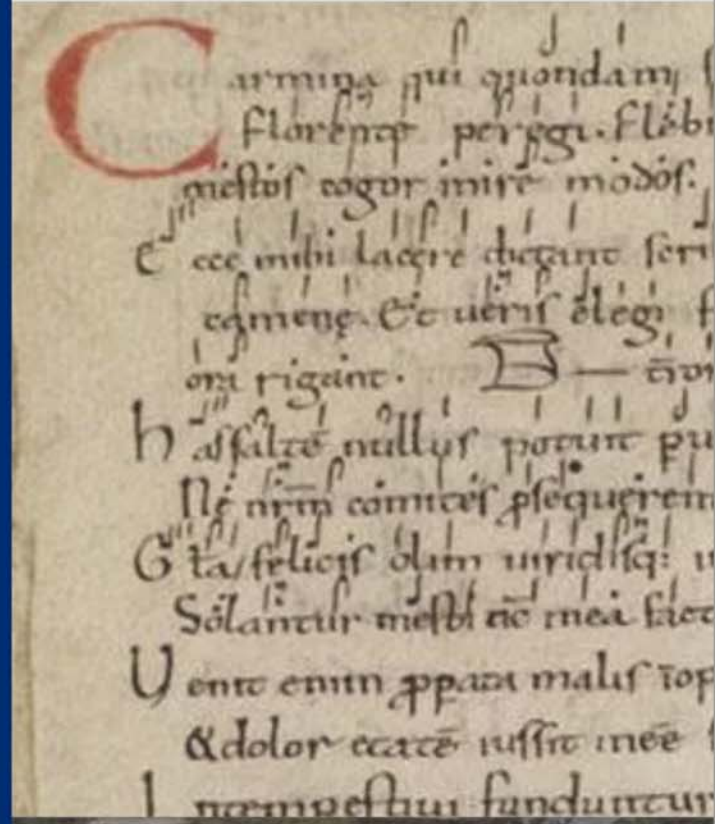 Carmina qui quondam
florente peregi. flebi
mestos cogor inire modos.
Ecce mihi lacere dictant scri
camenę. Et ueris elegi f
ora rigant.
hassaltē nullus potuit pu
Ne nrm̄ comites ꝓsequeren
felicis olim uiridisq: u
Solantur mesti nc̄ mea fact
Uenit enim ꝓpata malis īop
&dolor etatē iussit inēē
Intempestiui funduntur